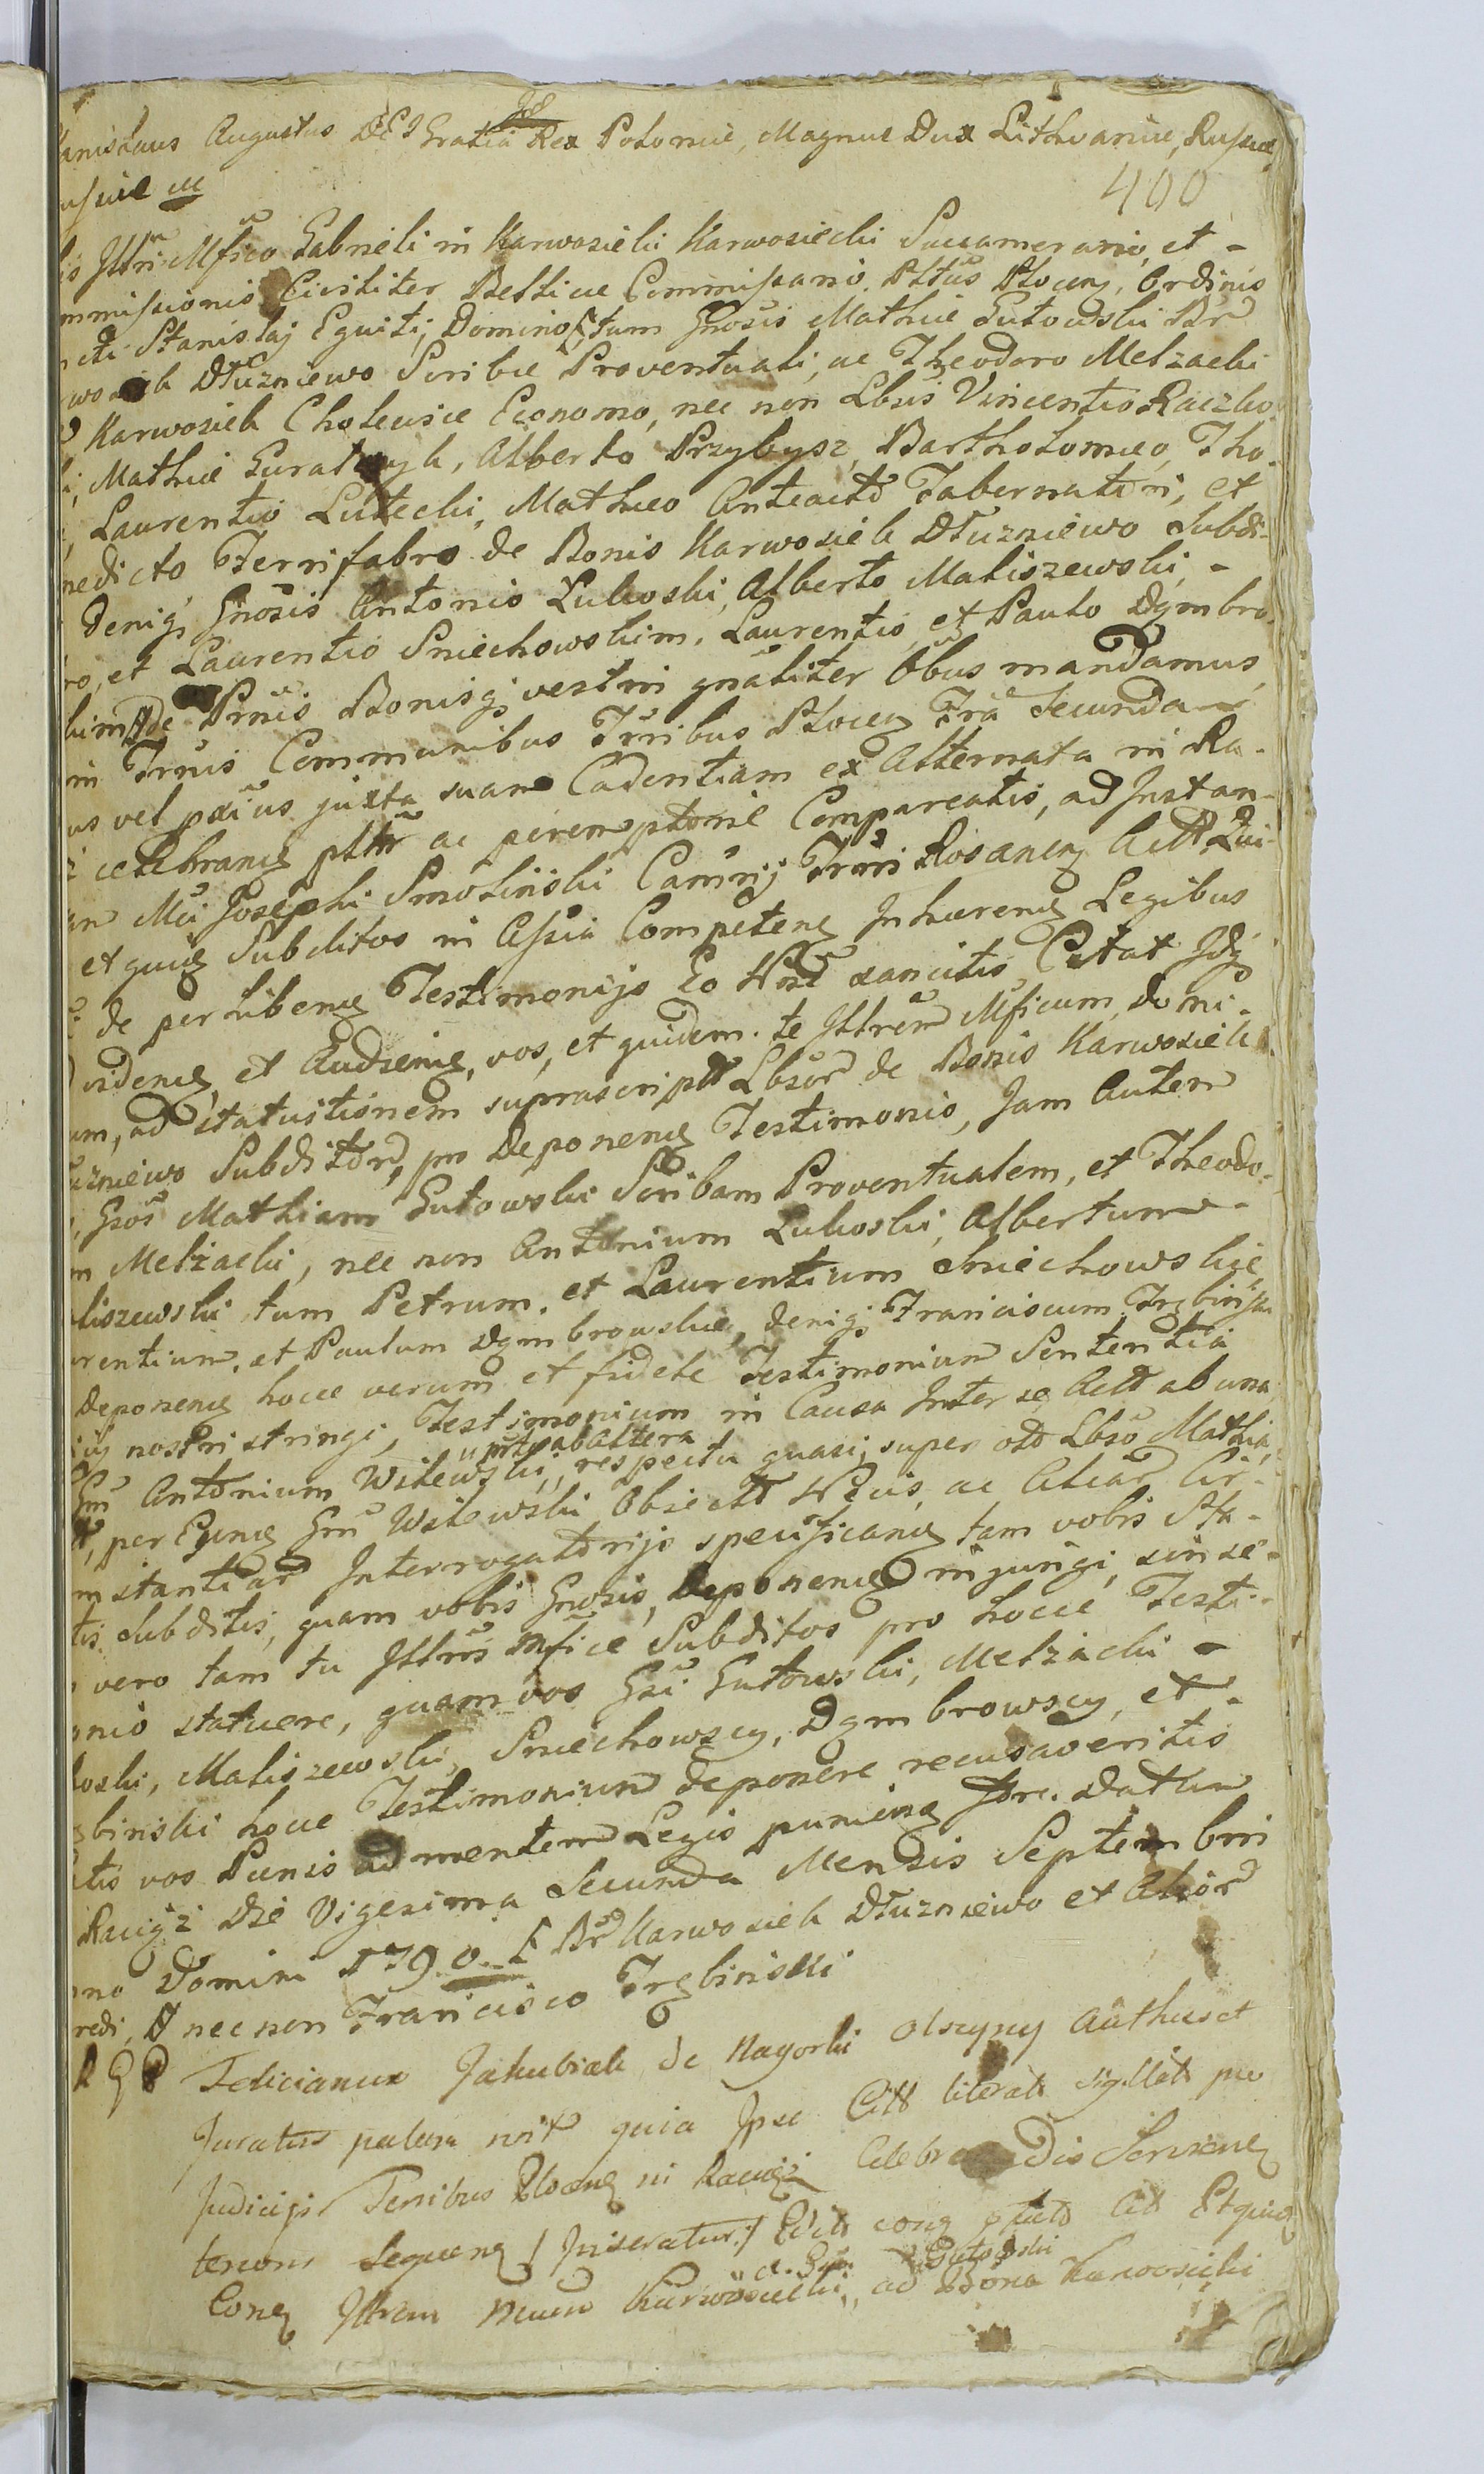 anislaus Augustus DEI Gratia Rex Poloniæ, Magnus Dux Lithvaniæ, Russiæ,
ussiæ &c
400
is Jllri Mfico Gabrieli in Karwosieki Karwosiecki Succamerario, et -
mmissionis Civiliter Bellicæ Commissario, Pltus Plocen, Ordinis
cti Stanislaj Equiti, Domino, tum Gnosis Mathiæ Gutowski Br
wosiek Dłuzniewo Scribæ Proventuali, ac Theodoro Melzacki
Karwosiek Cholewice Economo, nec non Lbsis Vincentio Raczko
i, Mathiæ Guratczyk, Alberto Przybysz, Bartholomæo, Tho-
Laurentio Lutecki, Mathæo Anteacto Tabernatori, et
nedicto Ferrifabro de Bonis Karwosiek Dłuzniewo Subdi-
Deniq Gnosis Antonio Łukoski, Alberto Maliszewski, -
ro, et Laurentio Sniechowskim, Laurentio et Paulo Dgmbro
kim de Prnis Bonisq vestri gnaliter Obus mandamus,
in Trnis Communibus Trribus Plocen Fra Secunda
us vel pxius juxta suam Cadentiam ex Alternata in Ra-
celebran pltr ac peremptorie Compareatis, ad Jnstan-
Mci Josephi Smolinski Camrij Trrij Rosanen Actt, Qui
et quiq Subditos in Assia Competen Jnhæren Legibus
de perhiben Testimonijs Eo Nse sancitis, Citat Jdq
viden et Audien, vos, et quidem te Jllrem Mficum, domi-
um, ad statuitionem suprascript Lbsor de Bonis Karwosiek
uzniewo Subditor, pro Deponen Testimonio, Jam Autem
Gsos Mathiam Gutowski Scribam Proventualem, et Theodo-
m Melzacki, nec non Antonium Lukoski, Albertum -
liszewski, tum Petrum, et Laurentium Sniechowskie,
rentium, et Paulum Dgmbrowskie, deniq Franciscum Trgbinski
Deponen hocce verum et fidele Testimonium Sententia
nostri stringi, Testimonium in Causa Jnter se Actt ab una,
Gnu Antonium Wilewski, respectu quasi super Lbso Mathia,
u prte ab Altera
per Egnu Gnu Wilewski Obiectt Necis, ac Aliar Cir-
mstantiar Jnterrogatorijs specifican tam vobis Sta-
tis Subditis, quam vobis Gnosis, Deponen injungi, sin se-
vero tam tu Jllris Mfice Subditos pro hocce Testi-
onio statuere, quam vos Gsi Gutowski, Melzacki -
koski, Maliszewski, Sniechowscy, Dgmbrowscy, et -
gbinski hocce Testimonium deponere recusaveritis
tis vos Pænis ad mentem Legis punien fore. Datum
Raciqz Die Vigesima Secunda Mensis Septembris
nno Domini 1790. Br Karwosiek Dłuzniewo et Alior
redi, nec non Francisco Trgbinski
Felicianus Jakubiak de Nagorki Olszyny Authus et
Juratus palam rcit quia Jpse Citt literatt sigillatt pro
Judicijs Terribus Plocen in Raciąż Celebrandis Serien
tenoris sequen / Jnseratur / Et quia
Con Jllrem Mcum Karwosiecki, ad Bona Karwosieki
Gutowski